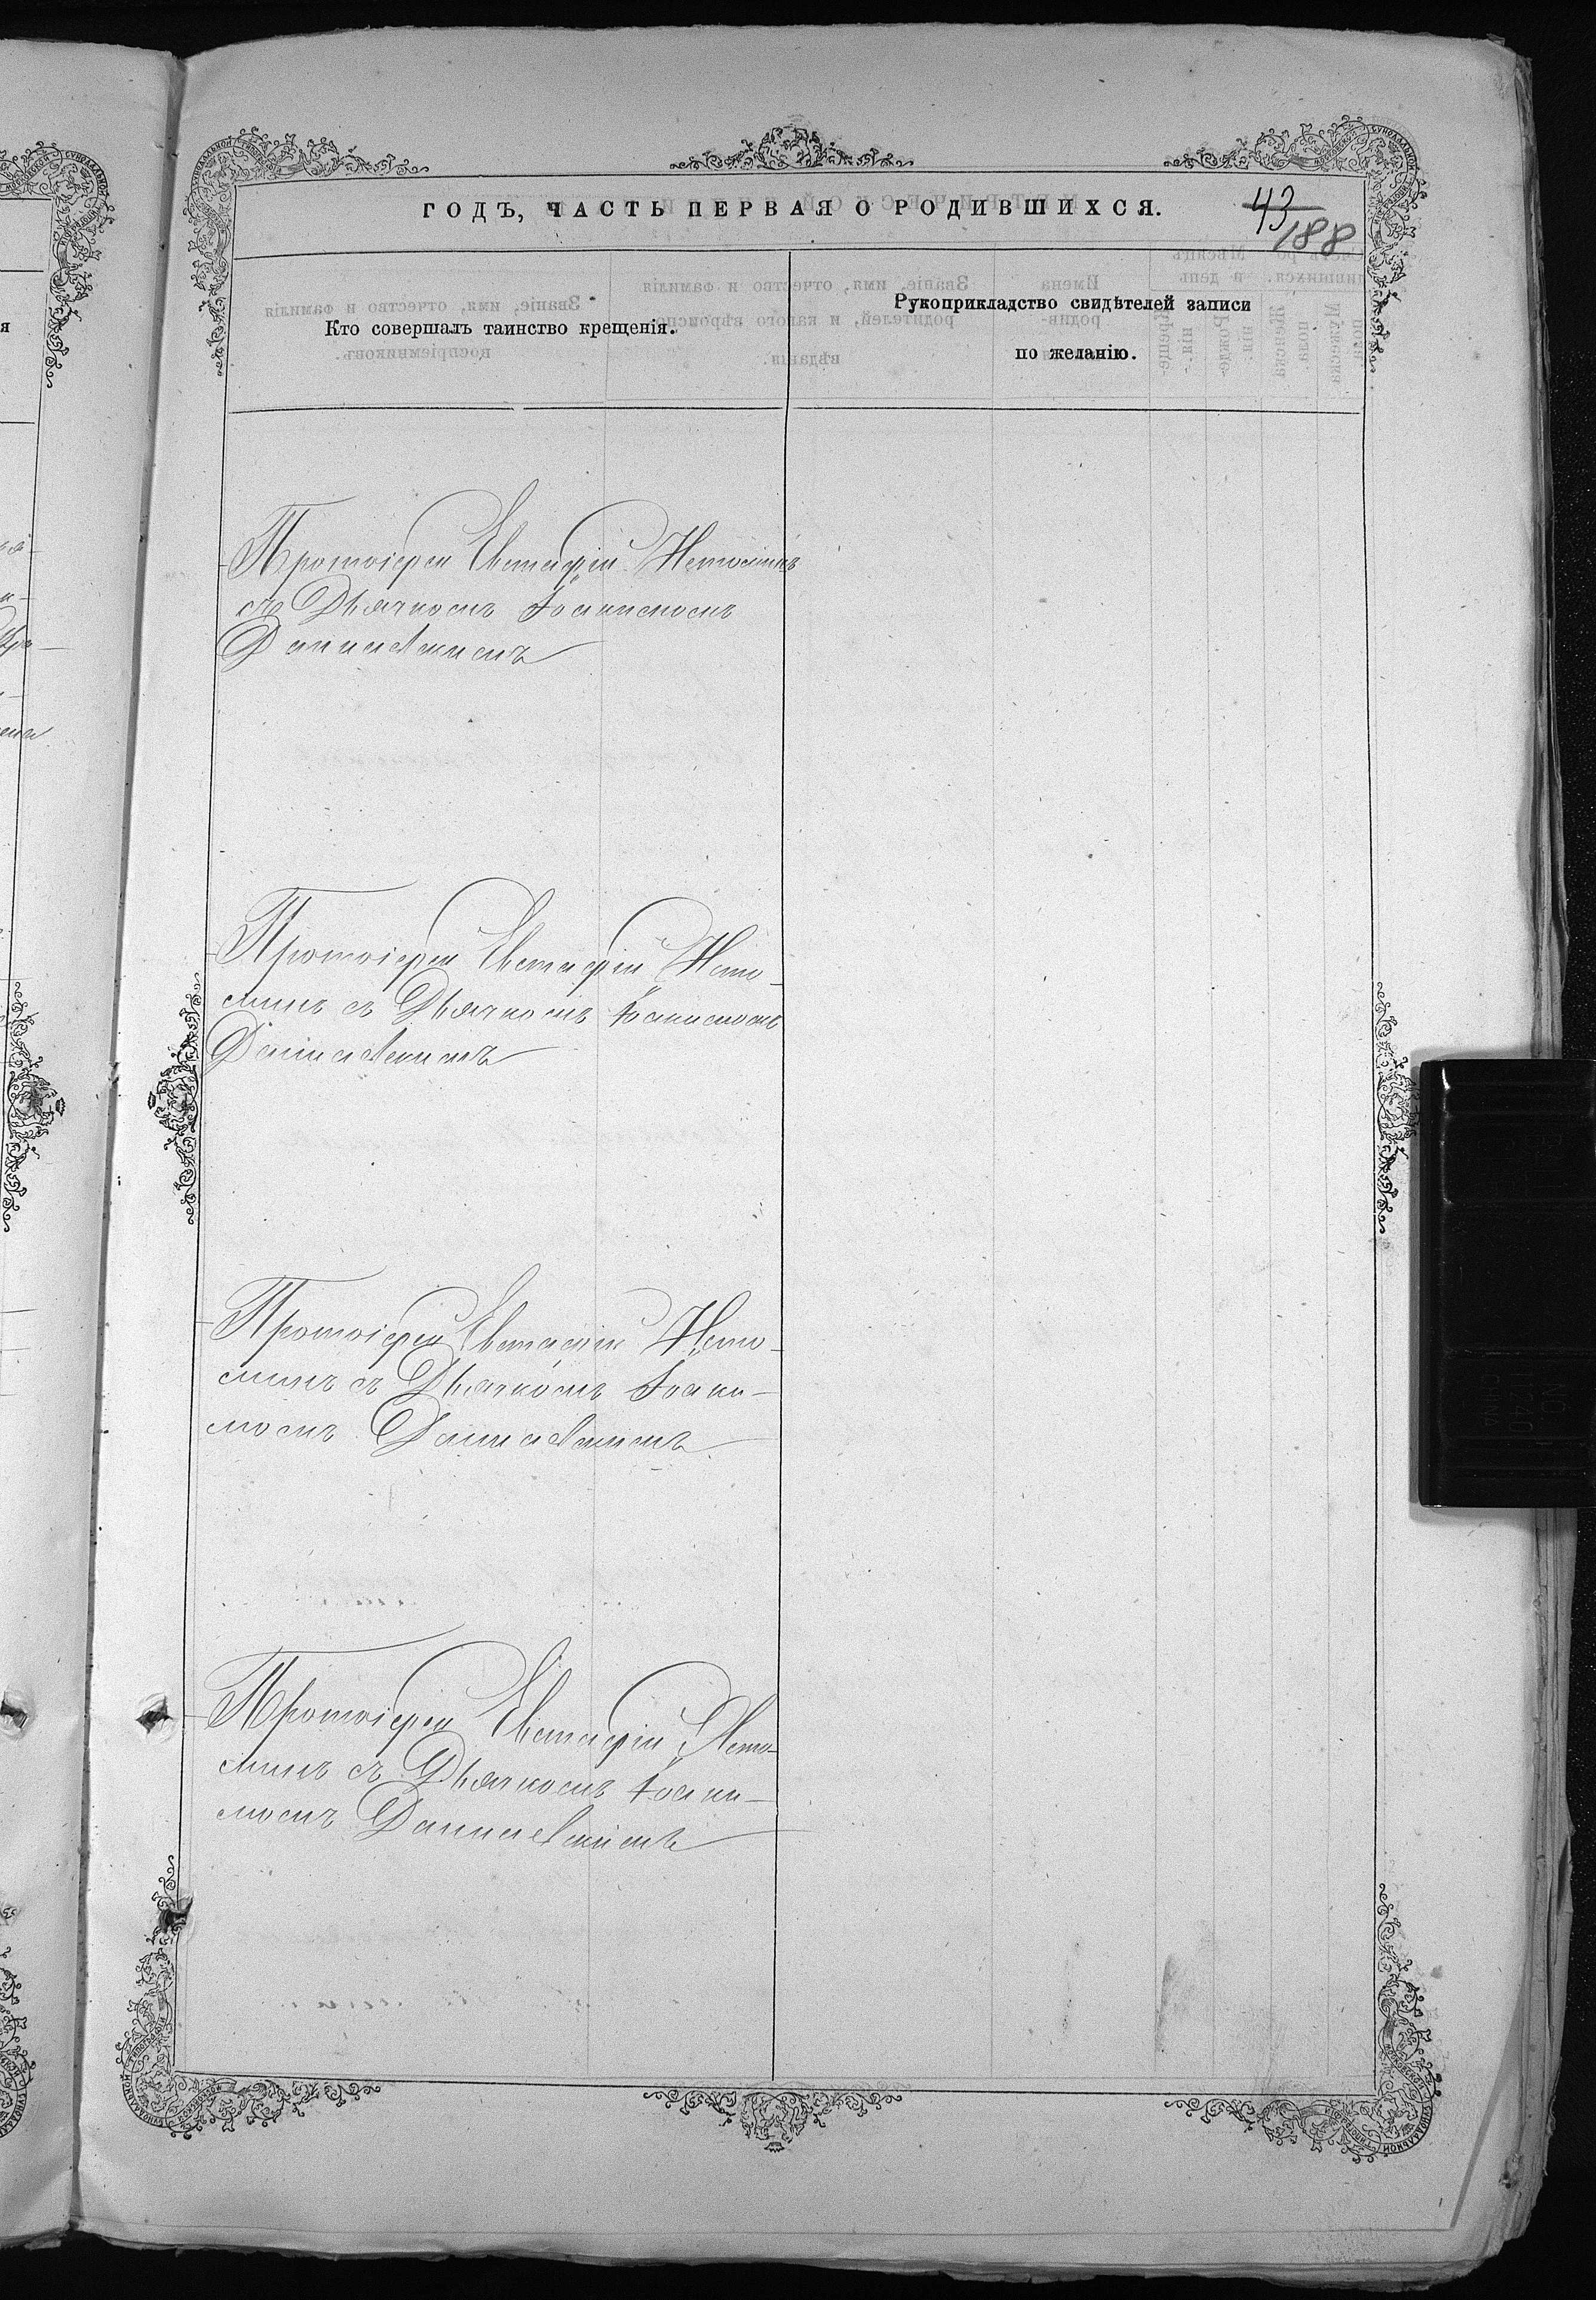 ГОДЪ, ЧАСТЬ ПЕРВАЯ О РОДИВШИХСЯ.
43
188
Кто совершалъ таинство крещенія.
Рукоприкладство свидѣтелей записи
по желанію.
Протоіерей Евстафій Истоминъ
съ Дьячкомъ Іоакимомъ
Протоіерей Евстафій Исто-
минъ съ Дьячкомъ Іоакимомъ
Протоіерей Евстафій Исто-
минъ съ Дьячкомъ Іоаки-
момъ
Протоіерей Евстафій Исто-
минъ съ Дьячкомъ Іоаки-
момъ